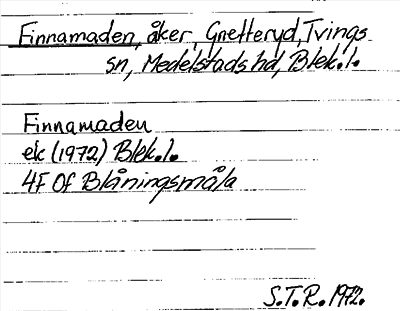 Finnamaden, åker, Gnetteryd, Tvings
sn, Medelstads hd, Blek. l.
Finnamaden
ek (1972) Blek. l.
4F 0f Blåningsmåla
S.T.R. 1972.